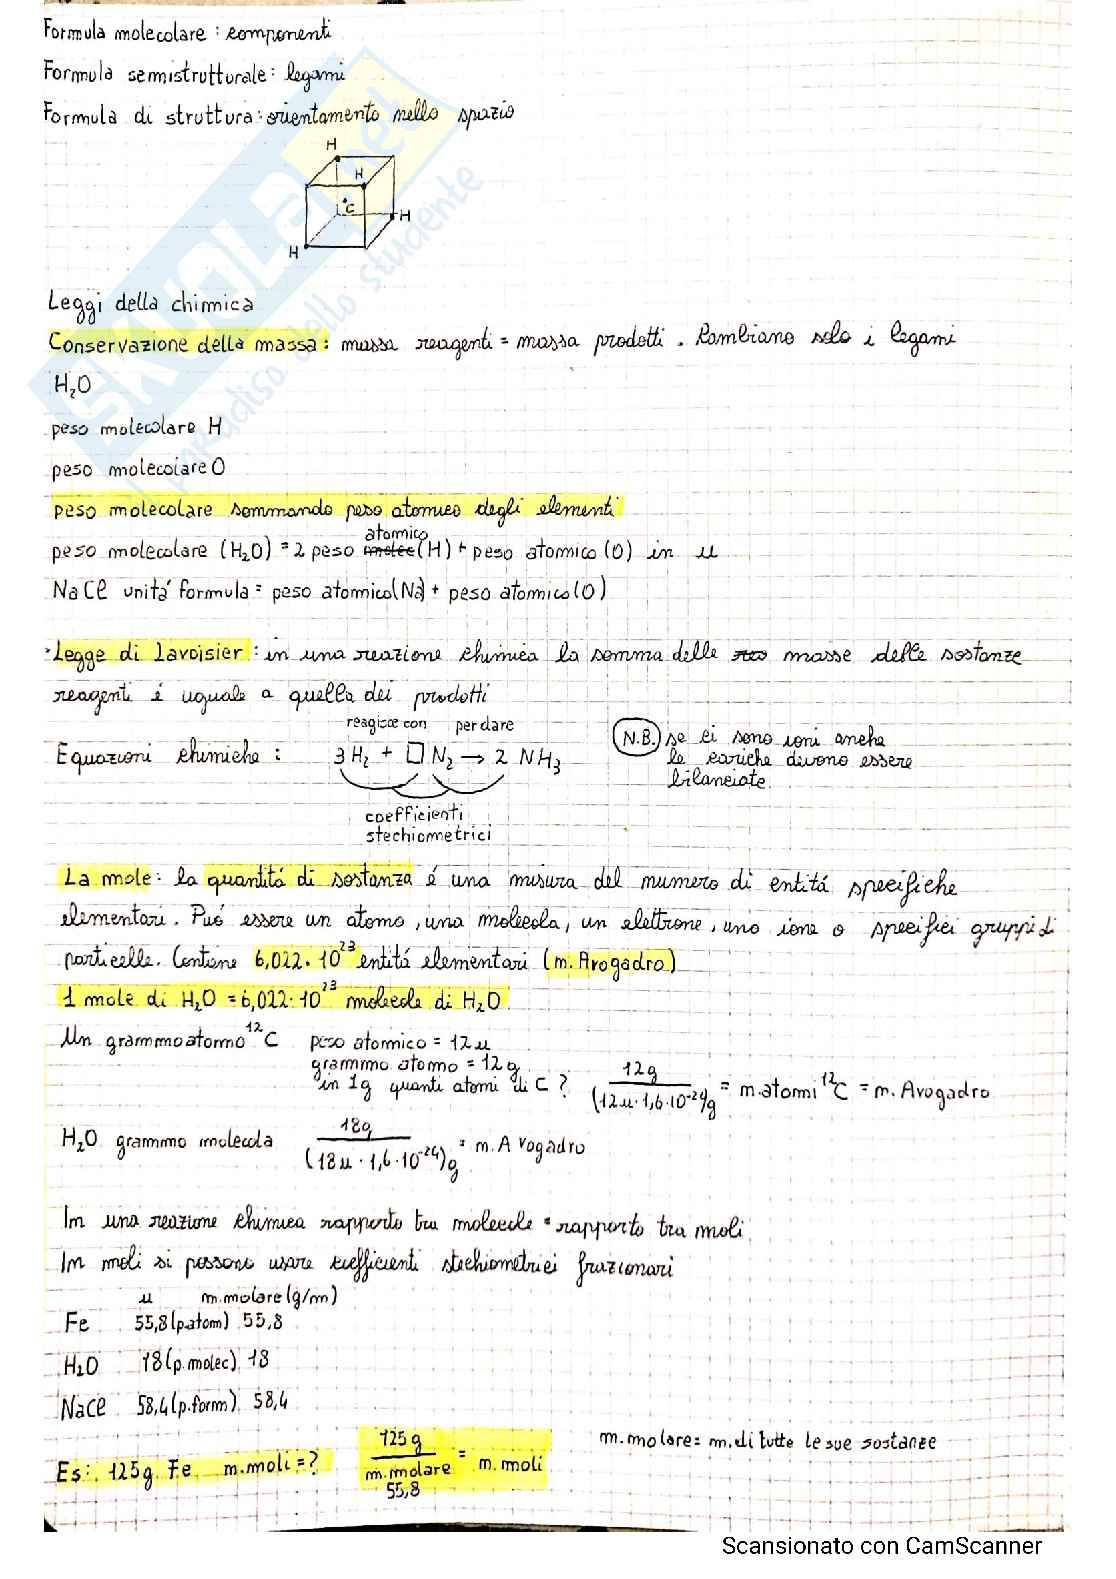 Formula molecolare : componenti
Formula semistrutturale : legami
Formula di struttura : orientamento nello spazio
H
H
C
H
H
Leggi della chimica
Conservazione della massa : massa reagenti = massa prodotti . Cambiano solo i legami
H₂O
peso molecolare H
peso molecolare O
peso molecolare sommando peso atomico degli elementi
atomico
peso molecolare (H₂O) = 2 peso molec (H) + peso atomico (O) in u
NaCl unitá formula = peso atomico (Na) + peso atomico (O)
· Legge di Lavoisier : in una reazione chimica la somma delle masse delle sostanze
reagenti é uguale a quella dei prodotti
reagisce con per dare
Equazioni chimiche : 3 H₂ + □ N₂ → 2 NH₃
N.B. se ci sono ioni anche
le cariche devono essere
bilanciate.
coefficienti
stechiometrici
La mole : la quantitá di sostanza é una misura del numero di entitá specifiche
elementari . Puó essere un atomo , una molecola , un elettrone , uno ione o specifici gruppi di
particelle . Contiene 6,022 · 10²³ entitá elementari (n. Avogadro)
1 mole di H₂O = 6,022 · 10²³ molecole di H₂O
Un grammoatomo ¹²C peso atomico = 12 u
grammo atomo = 12 g
in 1g quanti atomi di C ? 12 g / (12 u · 1,6 · 10⁻²⁴) g = n. atomi ¹²C = n. Avogadro
H₂O grammo molecola 18 g / (18 u · 1,6 · 10⁻²⁴) g = n. Avogadro
In una reazione chimica rapporto tra molecole = rapporto tra moli
In moli si possono usare coefficienti stechiometrici frazionari
u m. molare (g/m)
Fe 55,8 (p. atom) 55,8
H₂O 18 (p. molec) 18
NaCl 58,4 (p. form) 58,4
Es : 125 g Fe n. moli = ? 125 g / m. molare 55,8 = n. moli
m. molare = m. di tutte le sue sostanze
SKUOLA.net
paradiso dello studente
Scansionato con CamScanner